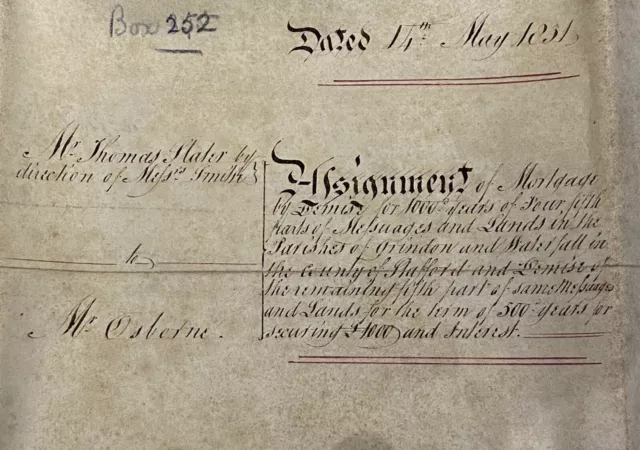 Box 252
Dated 14th May 1851
Mr. Thomas Slater by
direction of Messrs Smith
to
Mr. Osborne.
Assignment of Mortgage
by Demise for 1000 years of Four fifth
parts of Messuages and Lands in the
Parishes of Grindon and Waterfall in
the county of Stafford and Demise of
the remaining fifth part of same Messuages
and Lands for the term of 500 years for
securing £4000 and Interest.